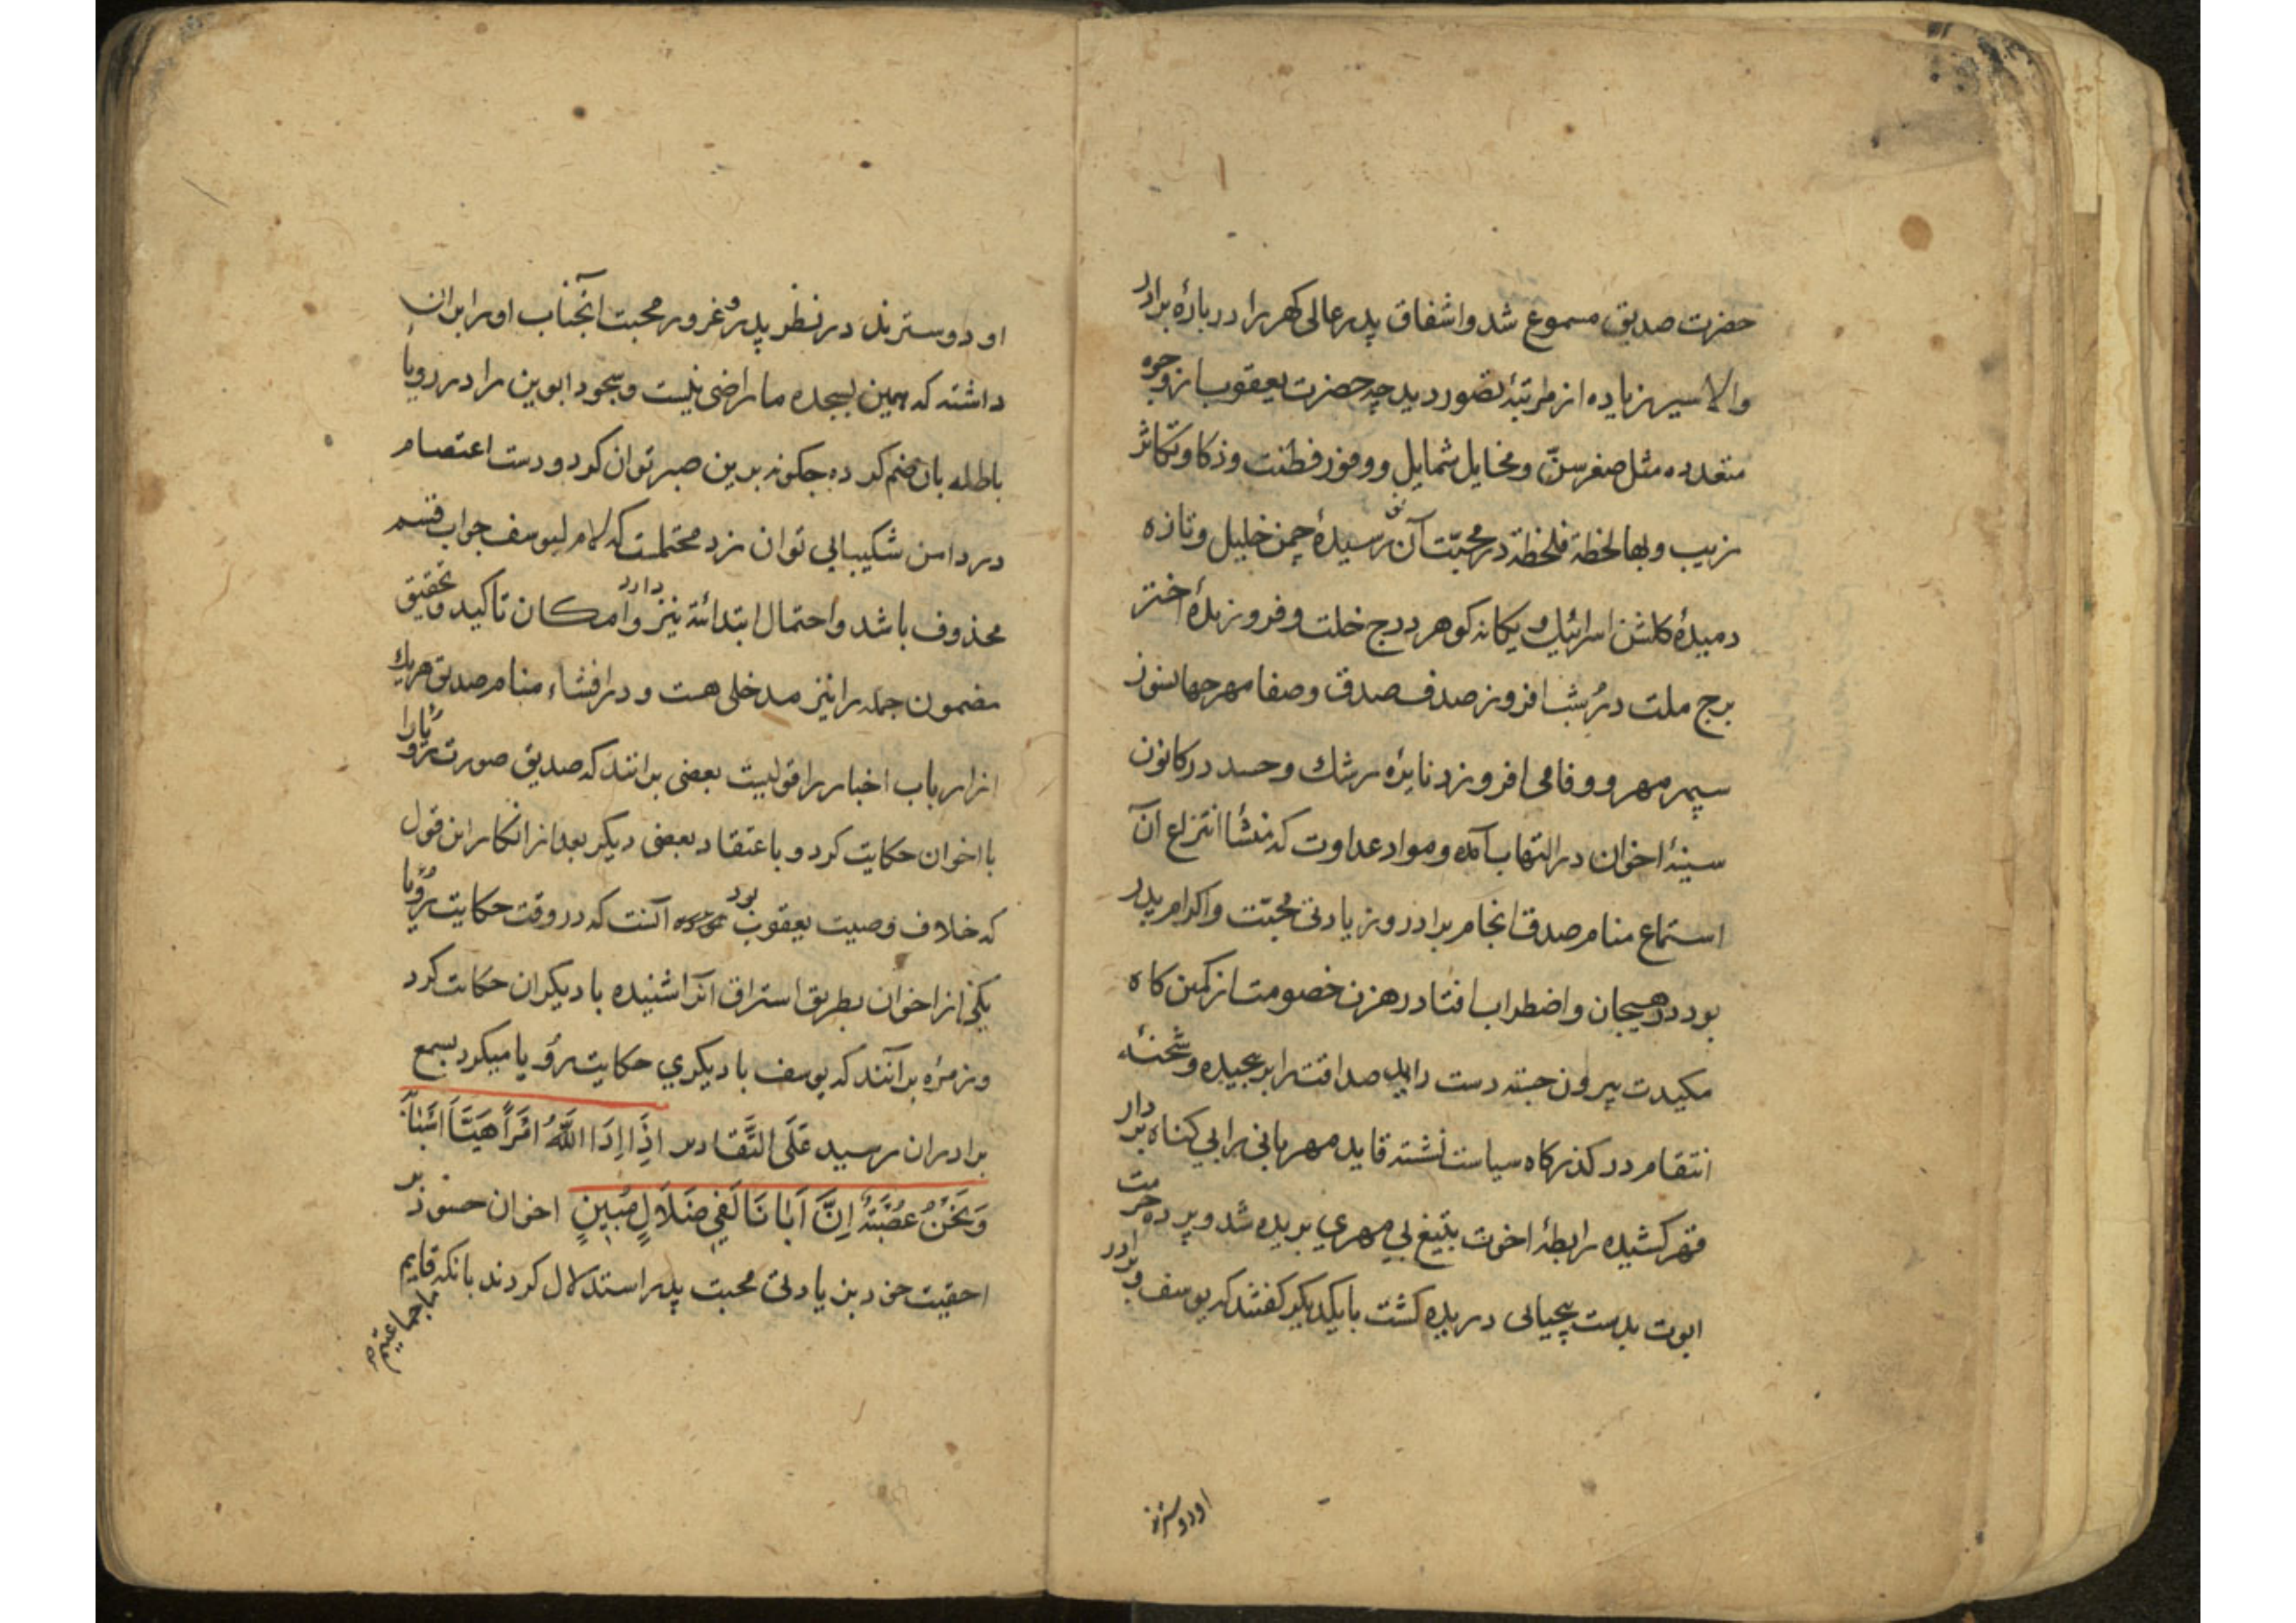 حضرت صدیق مسموع شد و اشفاق پدر عالی کهر را در بارهٔ برادر
والاسیر زیاده از مرتبهٔ تصور دید چه حضرت یعقوب از وجوه
متعدده مثل صغر سنّ و مخایل شمایل و وفور فطنت و ذکا و تکاثر
زیب و بها لحظة فلحظة در محبّت آن نو رسیدهٔ چمن خلیل و تازه
دمیدهٔ کلشن اسرائیل و یکانه کوهر درج خلت و فروزندهٔ اختر
برج ملت درّ شب افروز صدف صدق و صفا مهر جهانسوز
سپهر مهر و وفا می افزود نایرهٔ رشك و حسد در کانون
سینهٔ اخوان در التهاب آمده و مواد عداوت که منشأ انتزاع آن
استماع منام صدق انجام برادر و زیادتی محبّت و اکرام پدر
بود در هیجان و اضطراب افتاد رهزن خصومت از کمین کاه
مکیدت بیرون جسته دست صداقت را بر پیچیده و شحنهٔ
انتقام در کذرکاه سیاست نشسته قاید مهربانی را بی کناه بر دار
قهر کشیده رابطهٔ اخوت بتیغ بی مهری بریده شد و پرده حرمت
ابوت بدست بیحیایی دریده کشت با یکدیکر کفتند که یوسف و برادر
او دوسترند
او دوسترند در نظر پدر و غرور محبت آنجناب او را بر ان
داشته که بهمین بسجده ما راضی نیست و سجود ابوین را در رویا
باطله بان ضم کرده جکونه برین صبر توان کرد و دست اعتصام
در دامن شکیبایی توان زد محتملست که لام لیوسف جواب قسم
محذوف باشد و احتمال ابتدائیة نیز دارد و امکان تاکید و تحقیق
مضمون جمله را نیز مدخلی هست و در افشاء منام صدیق هریك
از ارباب اخبار را قولیست بعضی برانند که صدیق صورت رؤیا را
با اخوان حکایت کرد و باعتقاد بعضی دیکر بعد از انکار این قول
که خلاف وصیت یعقوب بود آنست که در وقت حکایت رؤیا
یکی از اخوان بطریق استراق آنرا شنیده با دیکران حکایت کرد
و زمرهٔ برآنند که یوسف با دیکری حکایت رؤیا میکرد بسمع
برادران رسید عَلَی التَّقادیر اِذَا اَرَادَ اللّٰهُ اَمْرًا هَیَّاَ اَسْبَابَهُ
وَنَحْنُ عُصْبَةٌ اِنَّ اَبَانَا لَفِی ضَلَالٍ مُبِینٍ اخوان حسود بر
احقیت خود بزیادتی محبت پدر استدلال کردند بانکه قایم
ما جماعتیم